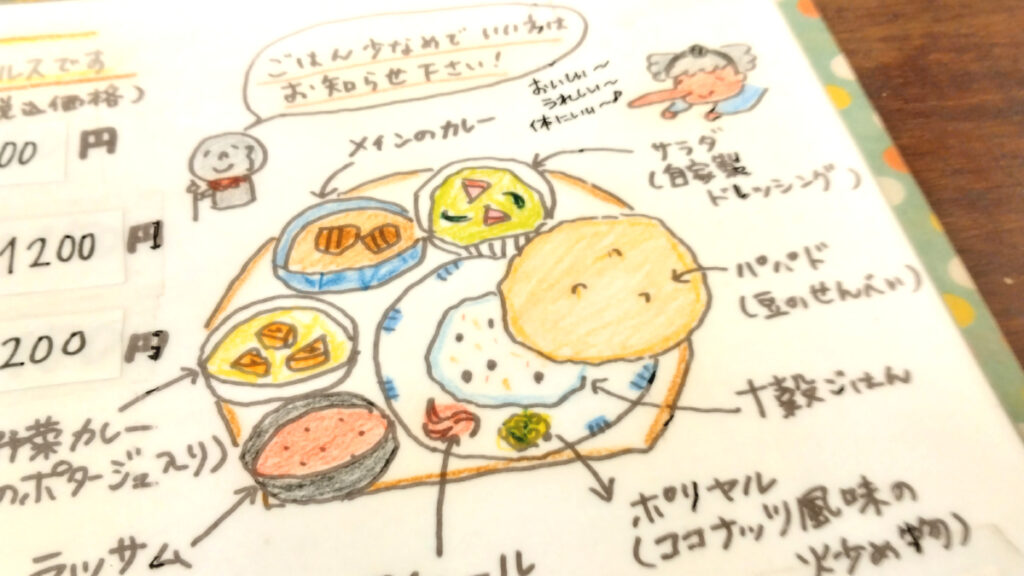 ルスです
税込価格)
00 円
1200 円
200 円
ごはん少なめで いい方は
お知らせ下さい!
おいしい〜
うれしい〜
体にいい〜♪
メインのカレー
サラダ
(自家製
ドレッシング)
パパド
(豆のせんべい)
十穀ごはん
ポリヤル
(ココナッツ風味の
炒め物)
野菜カレー
の、ポタージュ入り)
ラッサム